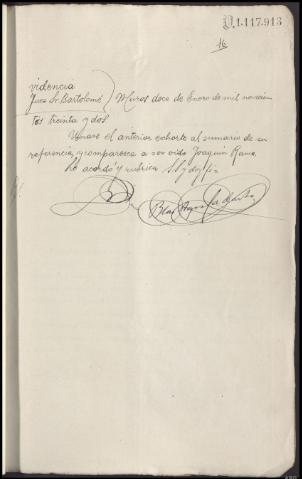 D.1.117.913
16
videncia
Juez Sr Bartolomé } Muros doce de Enero de mil novecien
tos treinta y dos.
Unase el anterior exhorto al sumario de su
referencia, y comparezca a ser oido Joaquin
Lo acordó y rubrica S.S. y doy fe
Blas